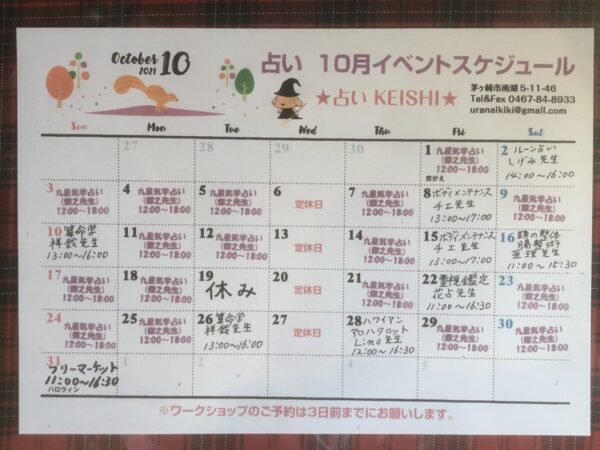 October 10
2021
占い 10月イベントスケジュール
★占い KEISHI★
茅ヶ崎市南湖 5-11-46
Tel&Fax 0467-84-8933
uranaikiki@gmail.com
Sun Mon Tue Wed Thu Fri Sat
27 28 29 30
1 九星気学占い
12:00〜18:00
衣がえ
2 ルーン占い
しげみ先生
14:00〜16:00
3 九星気学占い
12:00〜18:00
4 九星気学占い
12:00〜18:00
5 九星気学占い
12:00〜18:00
6
定休日
7 九星気学占い
12:00〜18:00
8 ボディメンテナンス
チエ先生
13:00〜17:00
9 九星気学占い
12:00〜18:00
10 算命学
先生
13:00〜16:00
11 九星気学占い
12:00〜18:00
12 九星気学占い
12:00〜18:00
13
定休日
14 九星気学占い
12:00〜18:00
15 ボディメンテナンス
チエ先生
13:00〜17:00
16 頭の整体
腸整
先生
11:00〜15:30
17 九星気学占い
12:00〜18:00
18 九星気学占い
12:00〜18:00
19
休み
20
定休日
21 九星気学占い
12:00〜18:00
22 霊視鑑定
花占先生
11:00〜16:30
23 九星気学占い
12:00〜18:00
24 九星気学占い
12:00〜18:00
25 九星気学占い
12:00〜18:00
26 算命学
先生
13:00〜16:00
27
定休日
28 ハワイアン
アロハタロット
Lino先生
12:00〜16:30
29 九星気学占い
12:00〜18:00
30 九星気学占い
12:00〜18:00
31
フリーマーケット
11:00〜16:30
ハロウィン
1 2 4 5
※ワークショップのご予約は3日前までにお願いします。